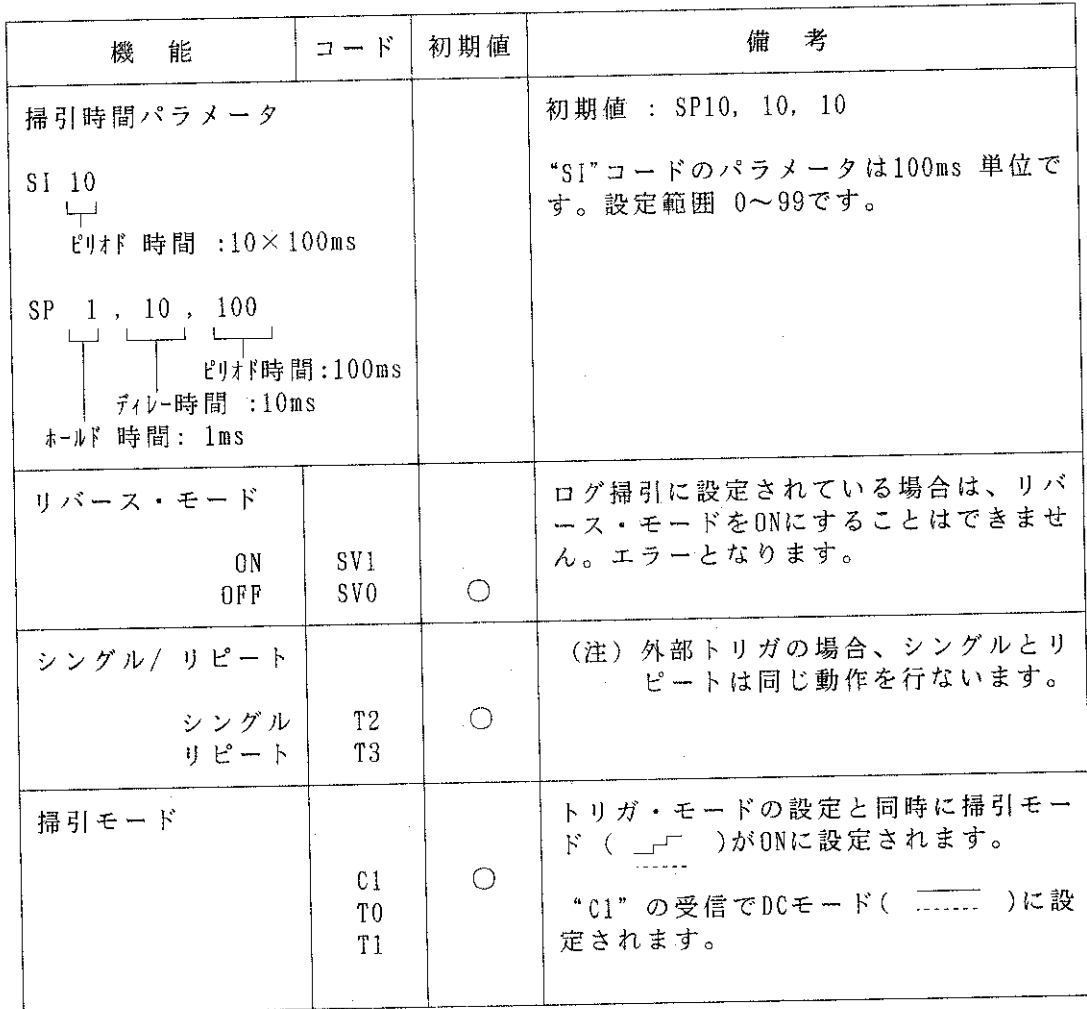 機　能　コード　初期値　備　考
掃引時間パラメータ
SI 10
ピリオド 時間 :10×100ms
SP 1 , 10 , 100
ピリオド時間:100ms
ディレー時間 :10ms
ホールド 時間: 1ms
初期値 : SP10, 10, 10
“SI”コードのパラメータは100ms 単位で
す。設定範囲 0～99です。
リバース・モード
ON　SV1
OFF　SV0　○
ログ掃引に設定されている場合は、リバ
ース・モードをONにすることはできませ
ん。エラーとなります。
シングル/ リピート
シングル　T2　○
リピート　T3
(注) 外部トリガの場合、シングルとリ
ピートは同じ動作を行ないます。
掃引モード
C1　○
T0
T1
トリガ・モードの設定と同時に掃引モー
ド ( )がONに設定されます。
“C1” の受信でDCモード( )に設
定されます。